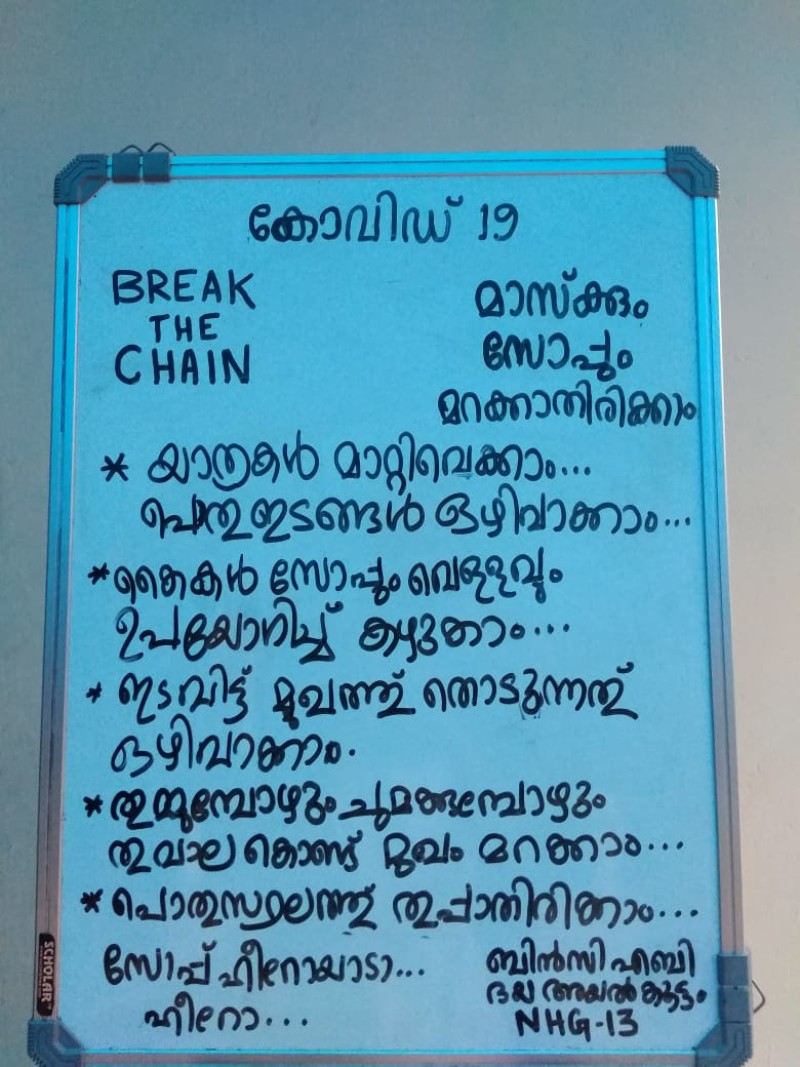 കോവിഡ് 19
BREAK
THE
CHAIN
മാസ്ക്കും
സോപ്പും
മറക്കാതിരിക്കാം
* യാത്രകൾ മാറ്റിവെക്കാം...
പൊതുഇടങ്ങൾ ഒഴിവാക്കാം...
* കൈകൾ സോപ്പും വെള്ളവും
ഉപയോഗിച്ച് കഴുകാം...
* ഇടവിട്ട് മുഖത്ത് തൊടുന്നത്
ഒഴിവാക്കാം.
* തുമ്മുമ്പോഴും ചുമക്കുമ്പോഴും
തുവാല കൊണ്ട് മുഖം മറക്കാം...
* പൊതുസ്ഥലത്ത് തുപ്പാതിരിക്കാം...
സോപ്പ് ഹീറോയാടാ...
ഹീറോ...
ബിൻസി എബി
ദയ അയൽകൂട്ടം
NHG-13
SCHOLAR